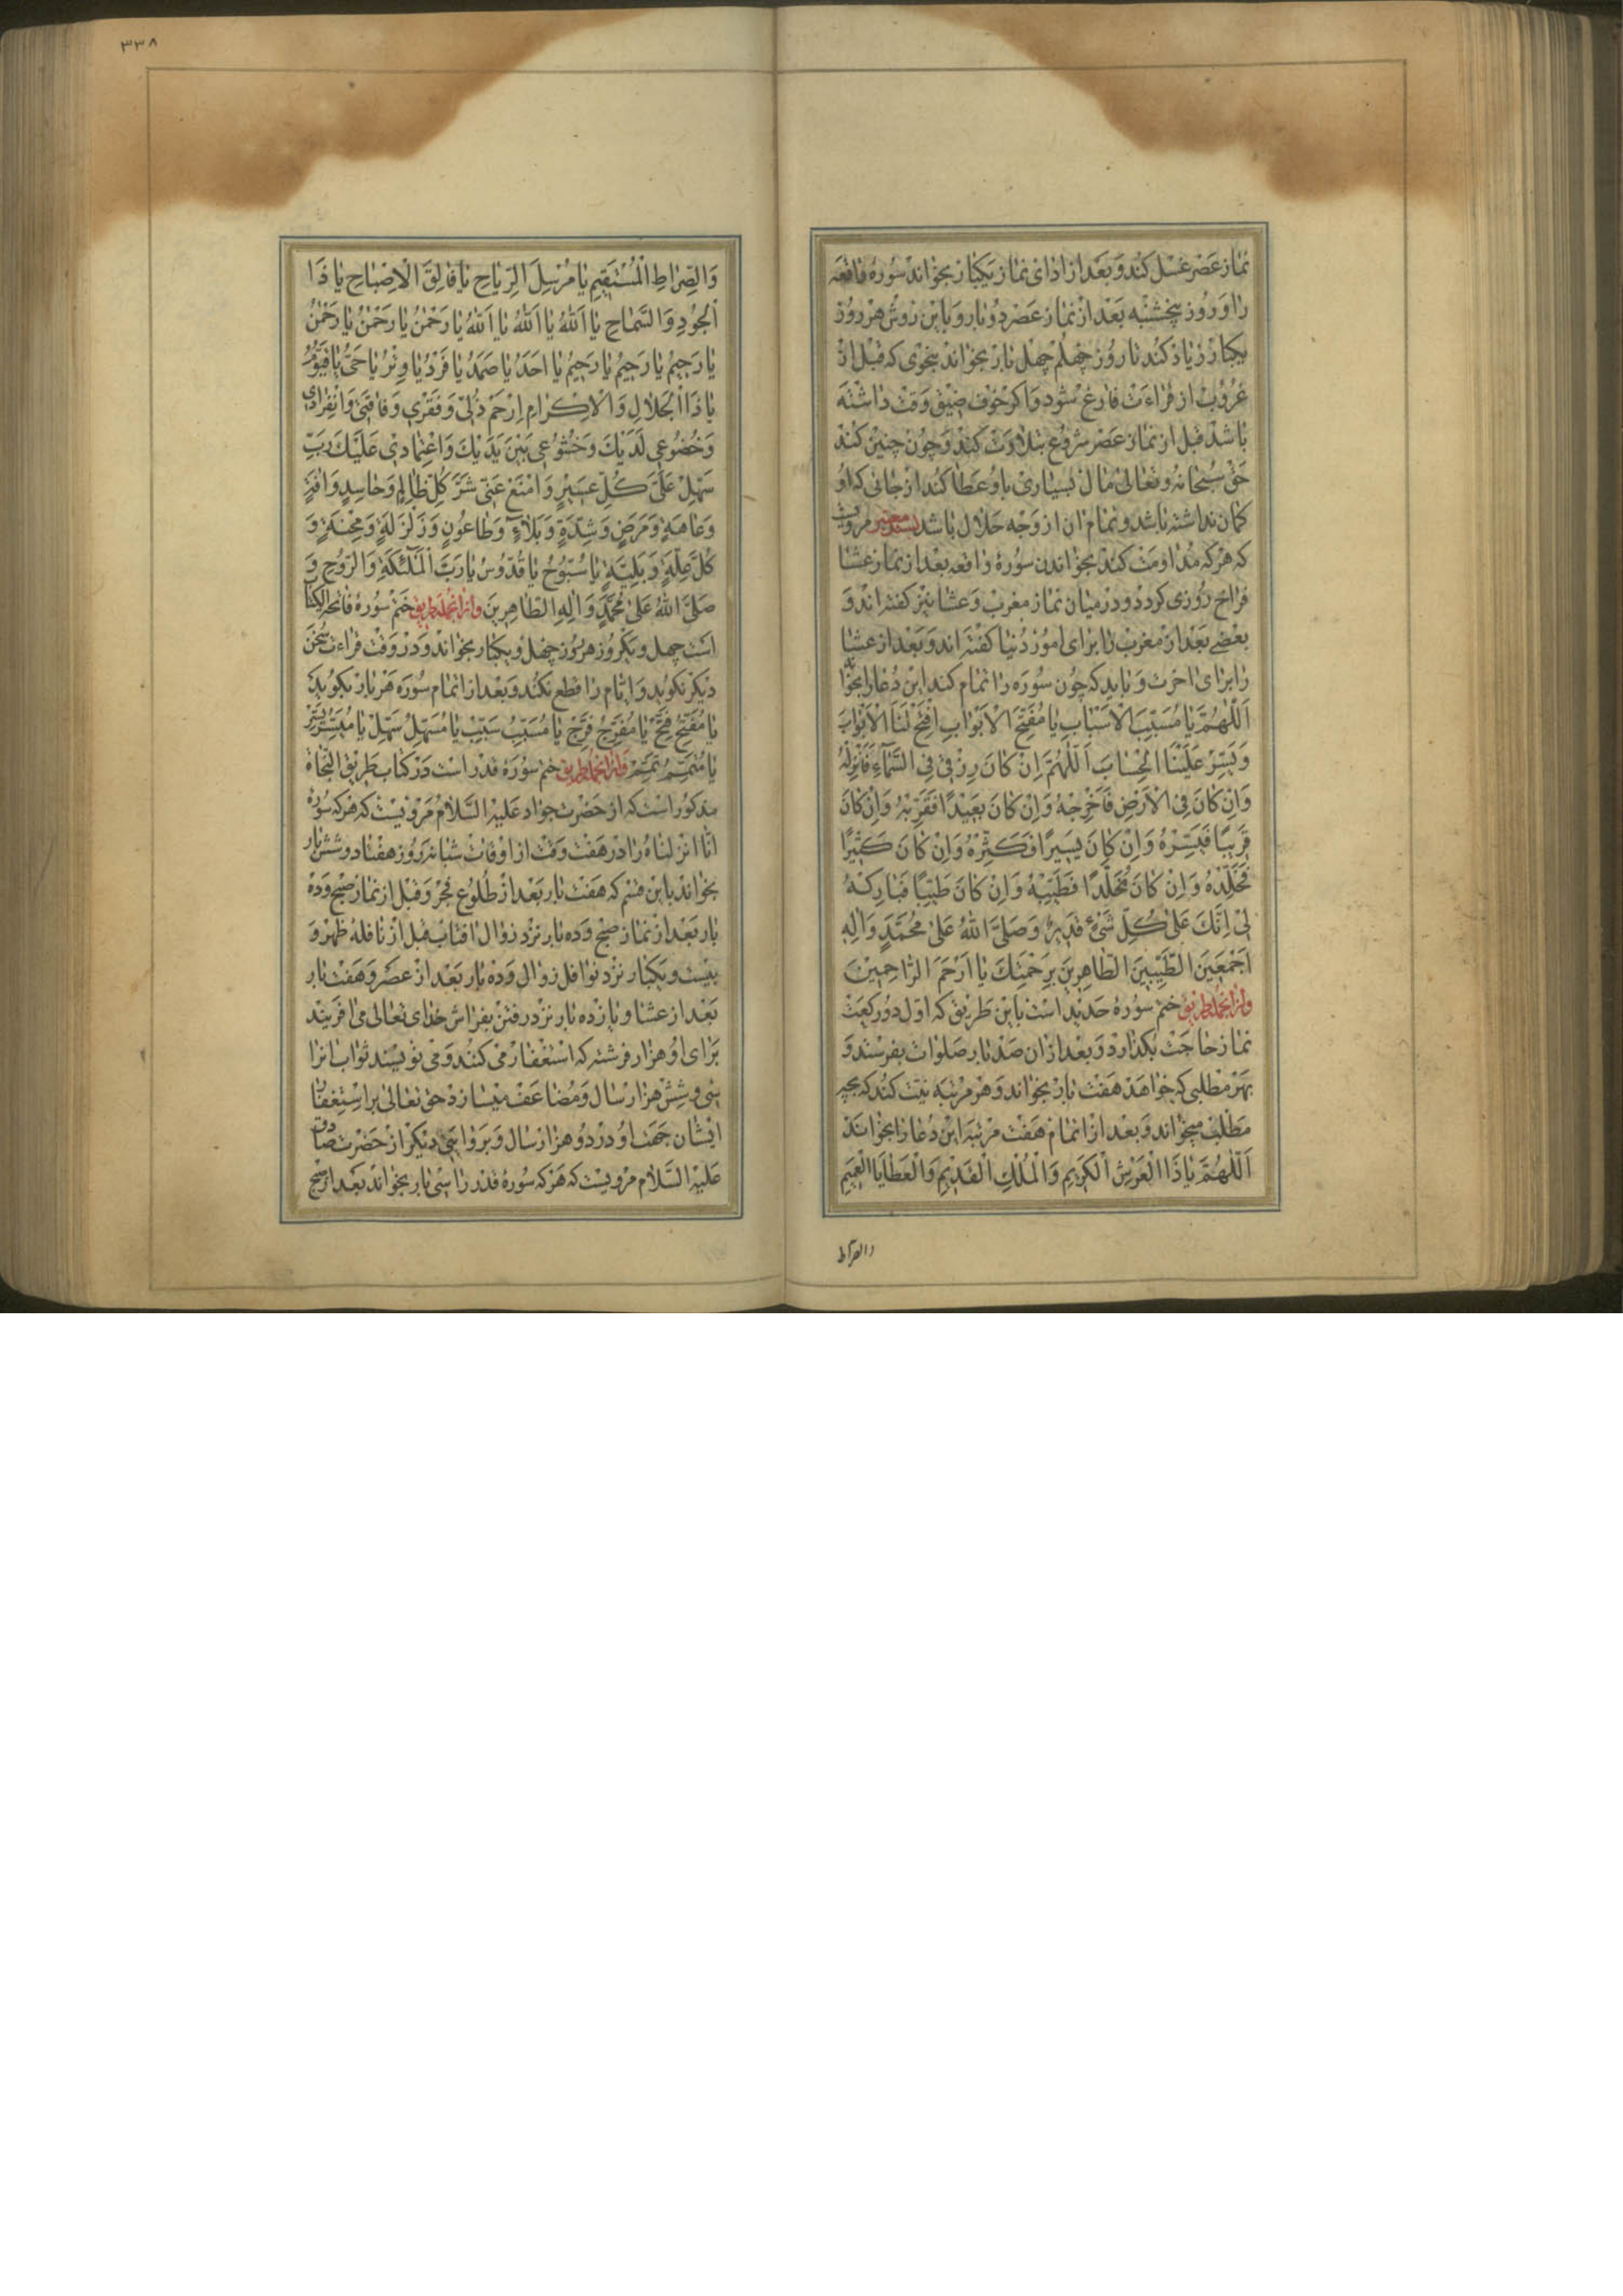 نماز عصر غسل کند و بعد از ادای نماز یکبار بخواند سورهٔ واقعه
را و روز پنجشنبه بعد از نماز عصر دو بار و باین روش هر روز
یکبار زیاد کند تا روز چهلم چهل بار بخواند بنحوی که قبل از
غروب از قراءت فارغ شود و اکر خوف ضیق وقت داشته
باشد قبل از نماز عصر شروع بتلاوت کند و چون چنین کند
حق سبحانه و تعالی مال بسیاری باو عطا کند از جائی که او
کمان نداشته باشد و تمام ان از وجه حلال باشد بسند معتبر مرویست
که هرکه مداومت کند بخواندن سورهٔ واقعه بعد از نماز عشا
فراخ روزی کردد و در میان نماز مغرب و عشا نیز کفته اند و
بعضی بعد از مغرب را برای امور دنیا کفته اند و بعد از عشا
را برای اخرت و باید که چون سوره را تمام کند این دعا را بخواند
اَللّهُمَّ یا مُسَبِّبَ الْاَسْبابِ یا مُفَتِّحَ الْاَبْوابِ اِفْتَحْ لَنَا الْاَبْوابَ
وَ یَسِّرْ عَلَیْنَا الْحِسابَ اَللّهُمَّ اِنْ کانَ رِزْقی فِی السَّماءِ فَاَنْزِلْهُ
وَ اِنْ کانَ فِی الْاَرْضِ فَاَخْرِجْهُ وَ اِنْ کانَ بَعیدًا فَقَرِّبْهُ وَ اِنْ کانَ
قَریبًا فَیَسِّرْهُ وَ اِنْ کانَ یَسیرًا فَکَثِّرْهُ وَ اِنْ کانَ کَثیرًا
فَخَلِّدْهُ وَ اِنْ کانَ مُخَلَّدًا فَطَیِّبْهُ وَ اِنْ کانَ طَیِّبًا فَبارِکْهُ
لی اِنَّکَ عَلی کُلِّ شَیْءٍ قَدیرٌ وَ صَلَّی اللهُ عَلی مُحَمَّدٍ وَ الِهِ
اَجْمَعینَ الطَّیِّبینَ الطّاهِرینَ بِرَحْمَتِکَ یا اَرْحَمَ الرّاحِمینَ
و از انجمله طریق ختم سورهٔ حدید است باین طریق که اول دو رکعت
نماز حاجت بکذارد و بعد از ان صد بار صلوات بفرستد و
بهر مطلبی که خواهد هفت بار بخواند و هر مرتبه نیت کند که بچه
مطلب میخواند و بعد از اتمام هفت مرتبه این دعا را بخواند
اَللّهُمَّ یا ذَا الْعَرْشِ الْکَریمِ وَ الْمُلْکِ الْقَدیمِ وَ الْعَطایَا الْعَمیمِ
والصراط
٣٣٨
وَ الصِّراطِ الْمُسْتَقیمِ یا مُرْسِلَ الرِّیاحِ یا فالِقَ الْاِصْباحِ یا ذَا
الْجُودِ وَ السَّماحِ یا اَللهُ یا اَللهُ یا اَللهُ یا رَحْمنُ یا رَحْمنُ یا رَحْمنُ
یا رَحیمُ یا رَحیمُ یا رَحیمُ یا اَحَدُ یا صَمَدُ یا فَرْدُ یا وِتْرُ یا حَیُّ یا قَیُّومُ
یا ذَا الْجَلالِ وَ الْاِکْرامِ اِرْحَمْ ذُلّی وَ فَقْری وَ فاقَتی وَ انْفِرادی
وَ خُضُوعی لَدَیْکَ وَ خُشُوعی بَیْنَ یَدَیْکَ وَ اعْتِمادی عَلَیْکَ رَبِّ
سَهِّلْ عَلَیَّ کُلَّ عَسیرٍ وَ امْنَعْ عَنّی شَرَّ کُلِّ ظالِمٍ وَ حاسِدٍ وَ افَةٍ
وَ عاهَةٍ وَ مَرَضٍ وَ شِدَّةٍ وَ بَلاءٍ وَ طاعُونٍ وَ زَلْزَلَةٍ وَ مِحْنَةٍ وَ
کُلَّ عِلَّةٍ وَ بَلِیَّةٍ یا سُبُّوحُ یا قُدُّوسُ یا رَبَّ الْمَلئِکَةِ وَ الرُّوحِ وَ
صَلَّی اللهُ عَلی مُحَمَّدٍ وَ الِهِ الطّاهِرینَ و از انجمله طریق ختم سورهٔ فاتحة الکتاب
است چهل و یکروز هر روز چهل و یکبار بخواند و در وقت قراءت سخن
دیکر نکوید و ایام را قطع نکند و بعد از اتمام سوره هر بار بکوید
یا مُفَتِّحُ فَتِّحْ یا مُفَرِّجُ فَرِّجْ یا مُسَبِّبُ سَبِّبْ یا مُسَهِّلُ سَهِّلْ یا مُیَسِّرُ یَسِّرْ
یا مُتَمِّمُ تَمِّمْ و از انجمله طریق ختم سورهٔ قدر است در کتاب طریق النجاة
مذکور است که از حضرت جواد علیه السلام مرویست که هرکه سوره
انا انزلناه را در هفت وقت از اوقات شبانه روز هفتاد و شش بار
بخواند باین قسم که هفت بار بعد از طلوع فجر و قبل از نماز صبح و ده
بار بعد از نماز صبح و ده بار نزد زوال افتاب قبل از نافلهٔ ظهر و
بیست و یکبار نزد نوافل زوال و ده بار بعد از عصر و هفت بار
بعد از عشا و یازده بار نزد رفتن بفراش خدای تعالی می افریند
برای او هزار فرشته که استغفار می کنند و می نویسند ثواب انرا
سی و شش هزار سال و مضاعف میسازد حق تعالی بر استغفار
ایشان جهت او در دو هزار سال و بروایتی دیکر از حضرت صادق
علیه السلام مرویست که هرکه سورهٔ قدر را سی بار بخواند بعد از صبح